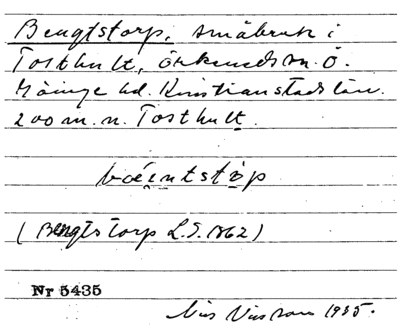 Bengtstorp, småbruk i
Tosthult, Örkeneds sn. Ö.
Göinge hd. Kristianstads län.
200 m. n. Tosthult.
(Bengtstorp L.S. 1862)
Nr 5435
Nils Nilsson 1935.